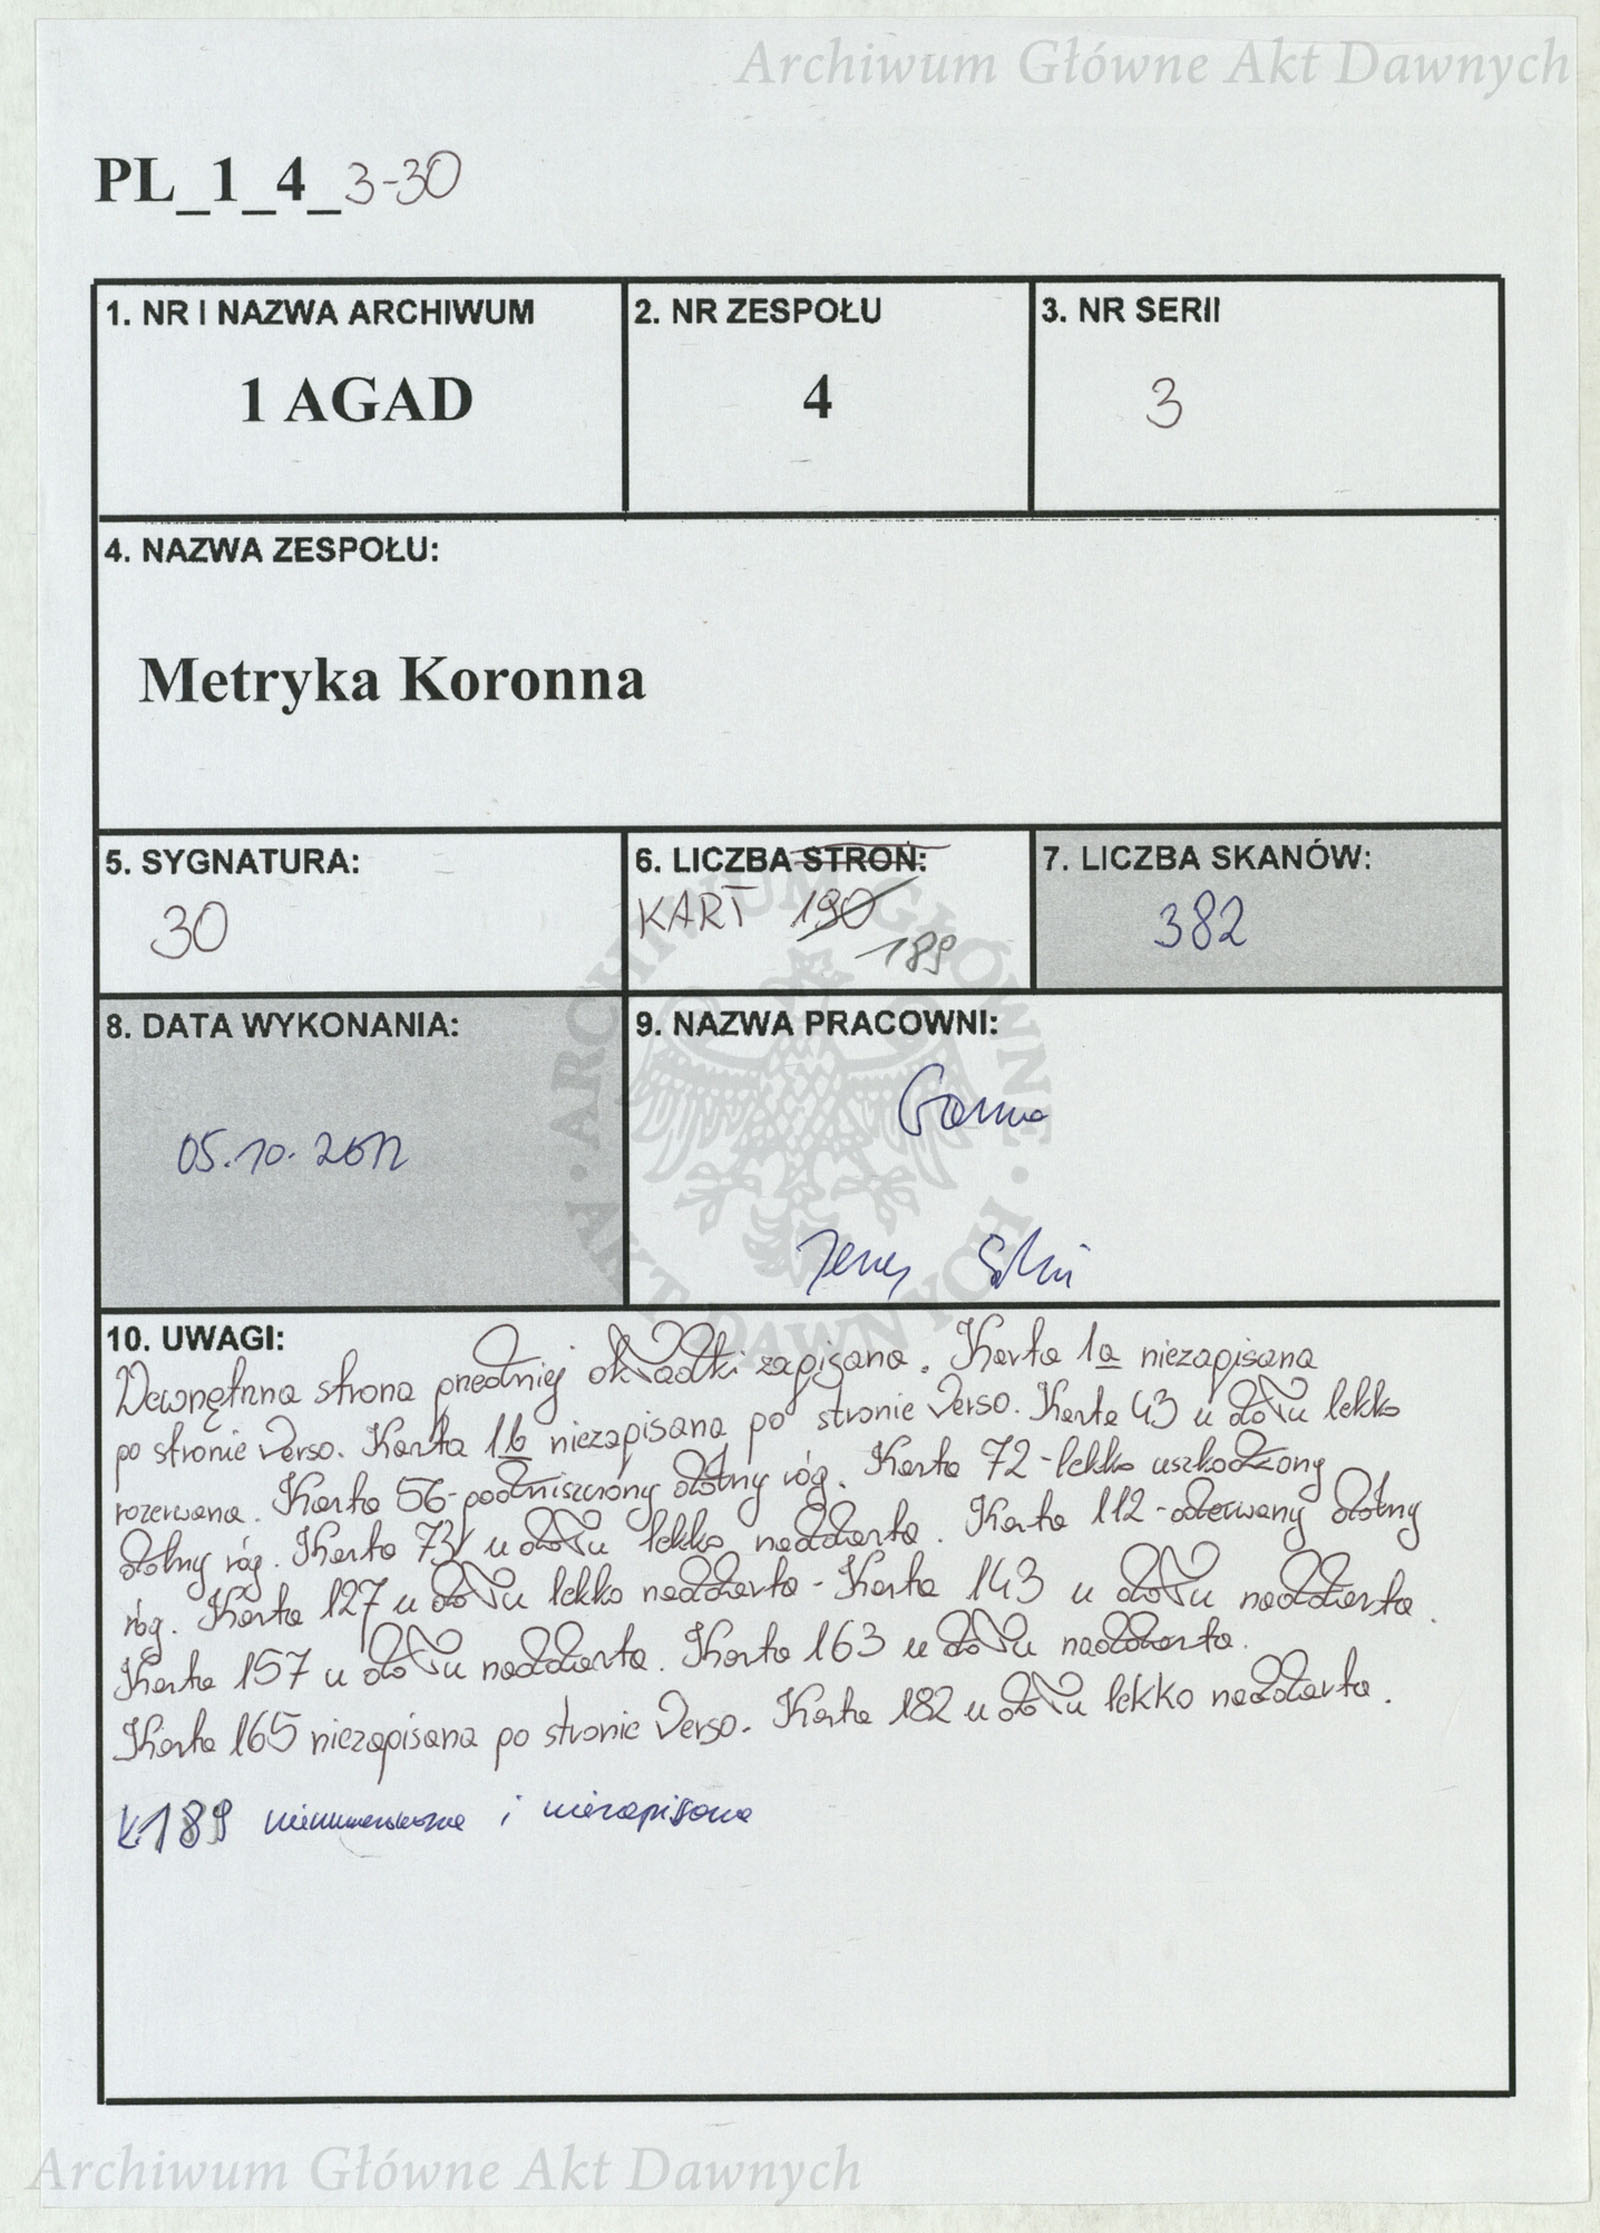 Archiwum Główne Akt Dawnych
PL_1_4_3-30
1. NR I NAZWA ARCHIWUM
1 AGAD
2. NR ZESPOŁU
4
3. NR SERII
3
4. NAZWA ZESPOŁU:
Metryka Koronna
5. SYGNATURA:
30
6. LICZBA STRON:
KART 190
189
7. LICZBA SKANÓW:
382
8. DATA WYKONANIA:
05.10.2012
9. NAZWA PRACOWNI:
Jerzy
10. UWAGI:
Wewnętrzna strona przedniej okładki zapisana. Karta 1a niezapisana
po stronie verso. Karta 1b niezapisana po stronie verso. Karta 43 u dołu lekko
rozerwana. Karta 56 - podniszczony dolny róg. Karta 72 - lekko uszkodzony
dolny róg. Karta 73 u dołu lekko naddarta. Karta 112 - oderwany dolny
róg. Karta 127 u dołu lekko naddarta - Karta 143 u dołu naddarta.
Karta 157 u dołu naddarta. Karta 163 u dołu naddarta.
Karta 165 niezapisana po stronie verso. Karta 182 u dołu lekko naddarta.
k.189 nienumerowana i niezapisana
ARCHIWUM GŁÓWNE · AKT DAWNYCH ·
Archiwum Główne Akt Dawnych